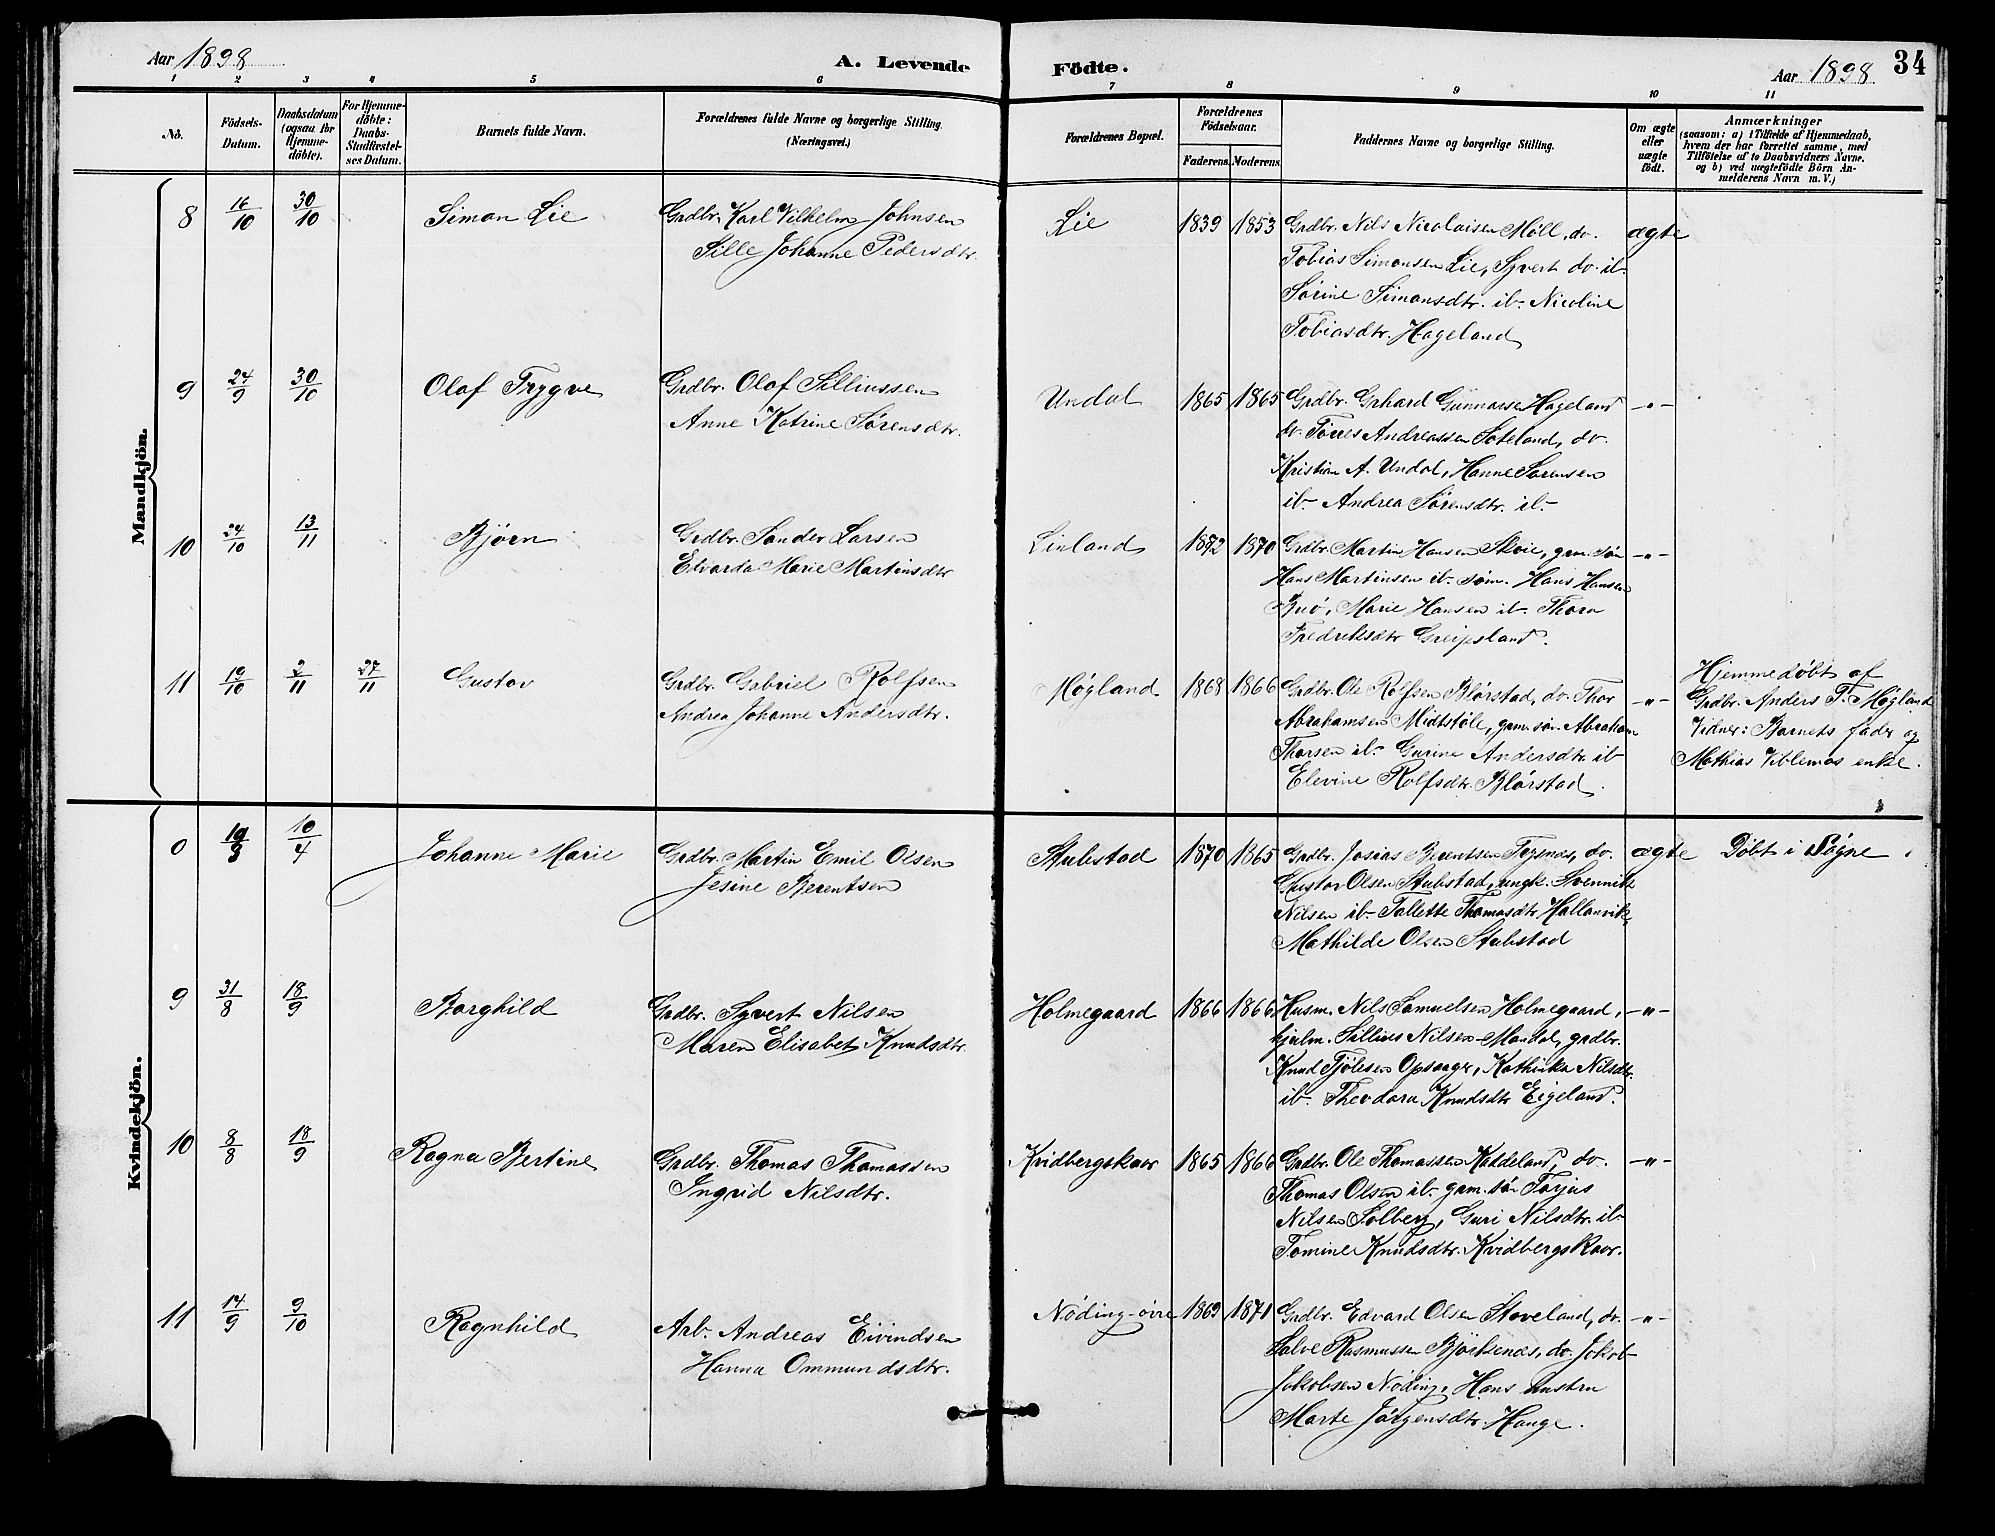 Aar 1898
A. Levende
Födte.
Aar 1898
34
1 2 3 4 5 6 7 8 9 10 11
No.
Födsels-
Datum.
Daabsdatum
(ogsaa for
Hjemme-
döbte).
For Hjemme-
döbte:
Daabs-
Stadfæstel-
ses Datum.
Barnets fulde Navn.
Forældrenes fulde Navne og borgerlige Stilling.
(Næringsvei.)
Forældrenes Bopæl.
Forældrenes
Födselsaar.
Faderens. Moderens.
Faddernes Navne og borgerlige Stilling.
Om ægte
eller
uægte
födt.
Anmærkninger
(saasom: a) i Tilfælde af Hjemmedaab,
hvem der har forrettet samme, med
Tilföielse af to Daabsvidners Navne,
og b) ved uægtefödte Börn An-
melderens Navn m. V.)
Mandkjön.
8 16/10 30/10 Simon Lie
Grdbr. Karl Vilhelm Johnsen
Sille Johanne Pedersdtr.
Lie 1839 1853
Grdbr. Nils Nicolaisen Möll, do.
Tobias Simonsen Lie, Syvert do. ib.
Sørine Simonsdtr. ib. Nicoline
Tobiasdtr. Hageland
ægte
9 24/9 30/10 Olaf Trygve
Grdbr. Olaf Silliussen
Anne Katrine Sørensdtr.
Undal 1865 1865
Grdbr. Grhard Gunnarsen Hageland
do. Tørres Andreassen Soteland, do.
Kristian A. Undal, Hanne Sørensen
ib. Andrea Sørensdtr. ib.
-"-
10 24/10 13/11 Bjørn
Grdbr. Sander Larsen
Edvarda Marie Martinsdtr
Linland 1872 1870
Grdbr. Martin Hansen Skoie, grm. søn
Hans Martinsen ib. søm. Hans Hansen
Buø, Marie Hansen ib. Thora
Fredriksdtr Greipsland.
-"-
11 19/10 2/11 27/11 Gustav
Grdbr. Gabriel Rolfsen
Andrea Johanne Andersdtr.
Møgland 1868 1866
Grdbr. Ole Rolfsen Blørstad, do. Thor
Abrahamsen Midtstøle, grm. søn Abraham
Thorsen ib. Gurine Andersdtr. ib
Elevine Rolfsdtr. Blørstad.
-"-
Hjemmedøbt af
Grdbr. Anders T. Møgland
Vidner: Barnets fader og
Mathias Viblemos enke.
Kvindekjön.
10/4 Johanne Marie
Grdbr. Martin Emil Olsen
Jesine Berentsen
Stubstad 1870 1865
Grdbr. Josias Berentsen Tegnæs, do.
Gustav Olsen Stubstad, ungk. Svennik
Nilsen ib. Tallette Thomasdtr. Hallanvik,
Mathilde Olsen Stubstad
ægte
Døbt i Søgne.
9 31/8 18/9 Borghild
Grdbr. Syvert Nilsen
Maren Elisabet Knudsdtr.
Holmegaard 1866 1866
Husm. Nils Samuelsen Holmegaard,
hjulm. Sillius Nilsen Mandal, grdbr.
Knud Tjølesen Opsager, Kathinka Nilsdtr.
ib. Theodora Knudsdtr Eigeland.
-"-
10 8/8 18/9 Ragna Bertine
Grdbr. Thomas Thomassen
Ingrid Nilsdtr.
Kvidbergskaar 1865 1866
Grdbr. Ole Thomassen Kaddeland, do.
Thomas Olsen ib. grm. søn Torjus
Nilsen Solberg, Guri Nilsdtr. ib
Tomine Knudsdtr. Kvidbergskaar.
-"-
11 14/9 9/10 Ragnhild
Arb. Andreas Eivindsen
Hanna Ommundsdtr.
Nöding övre 1869 1871
Grdbr. Edvard Olsen Stoveland, do.
Salve Rasmussen Björkenæs, do. Jakob
Jakobsen Nöding, Hans hustru
Marte Jörgensdtr. Hauge.
-"-